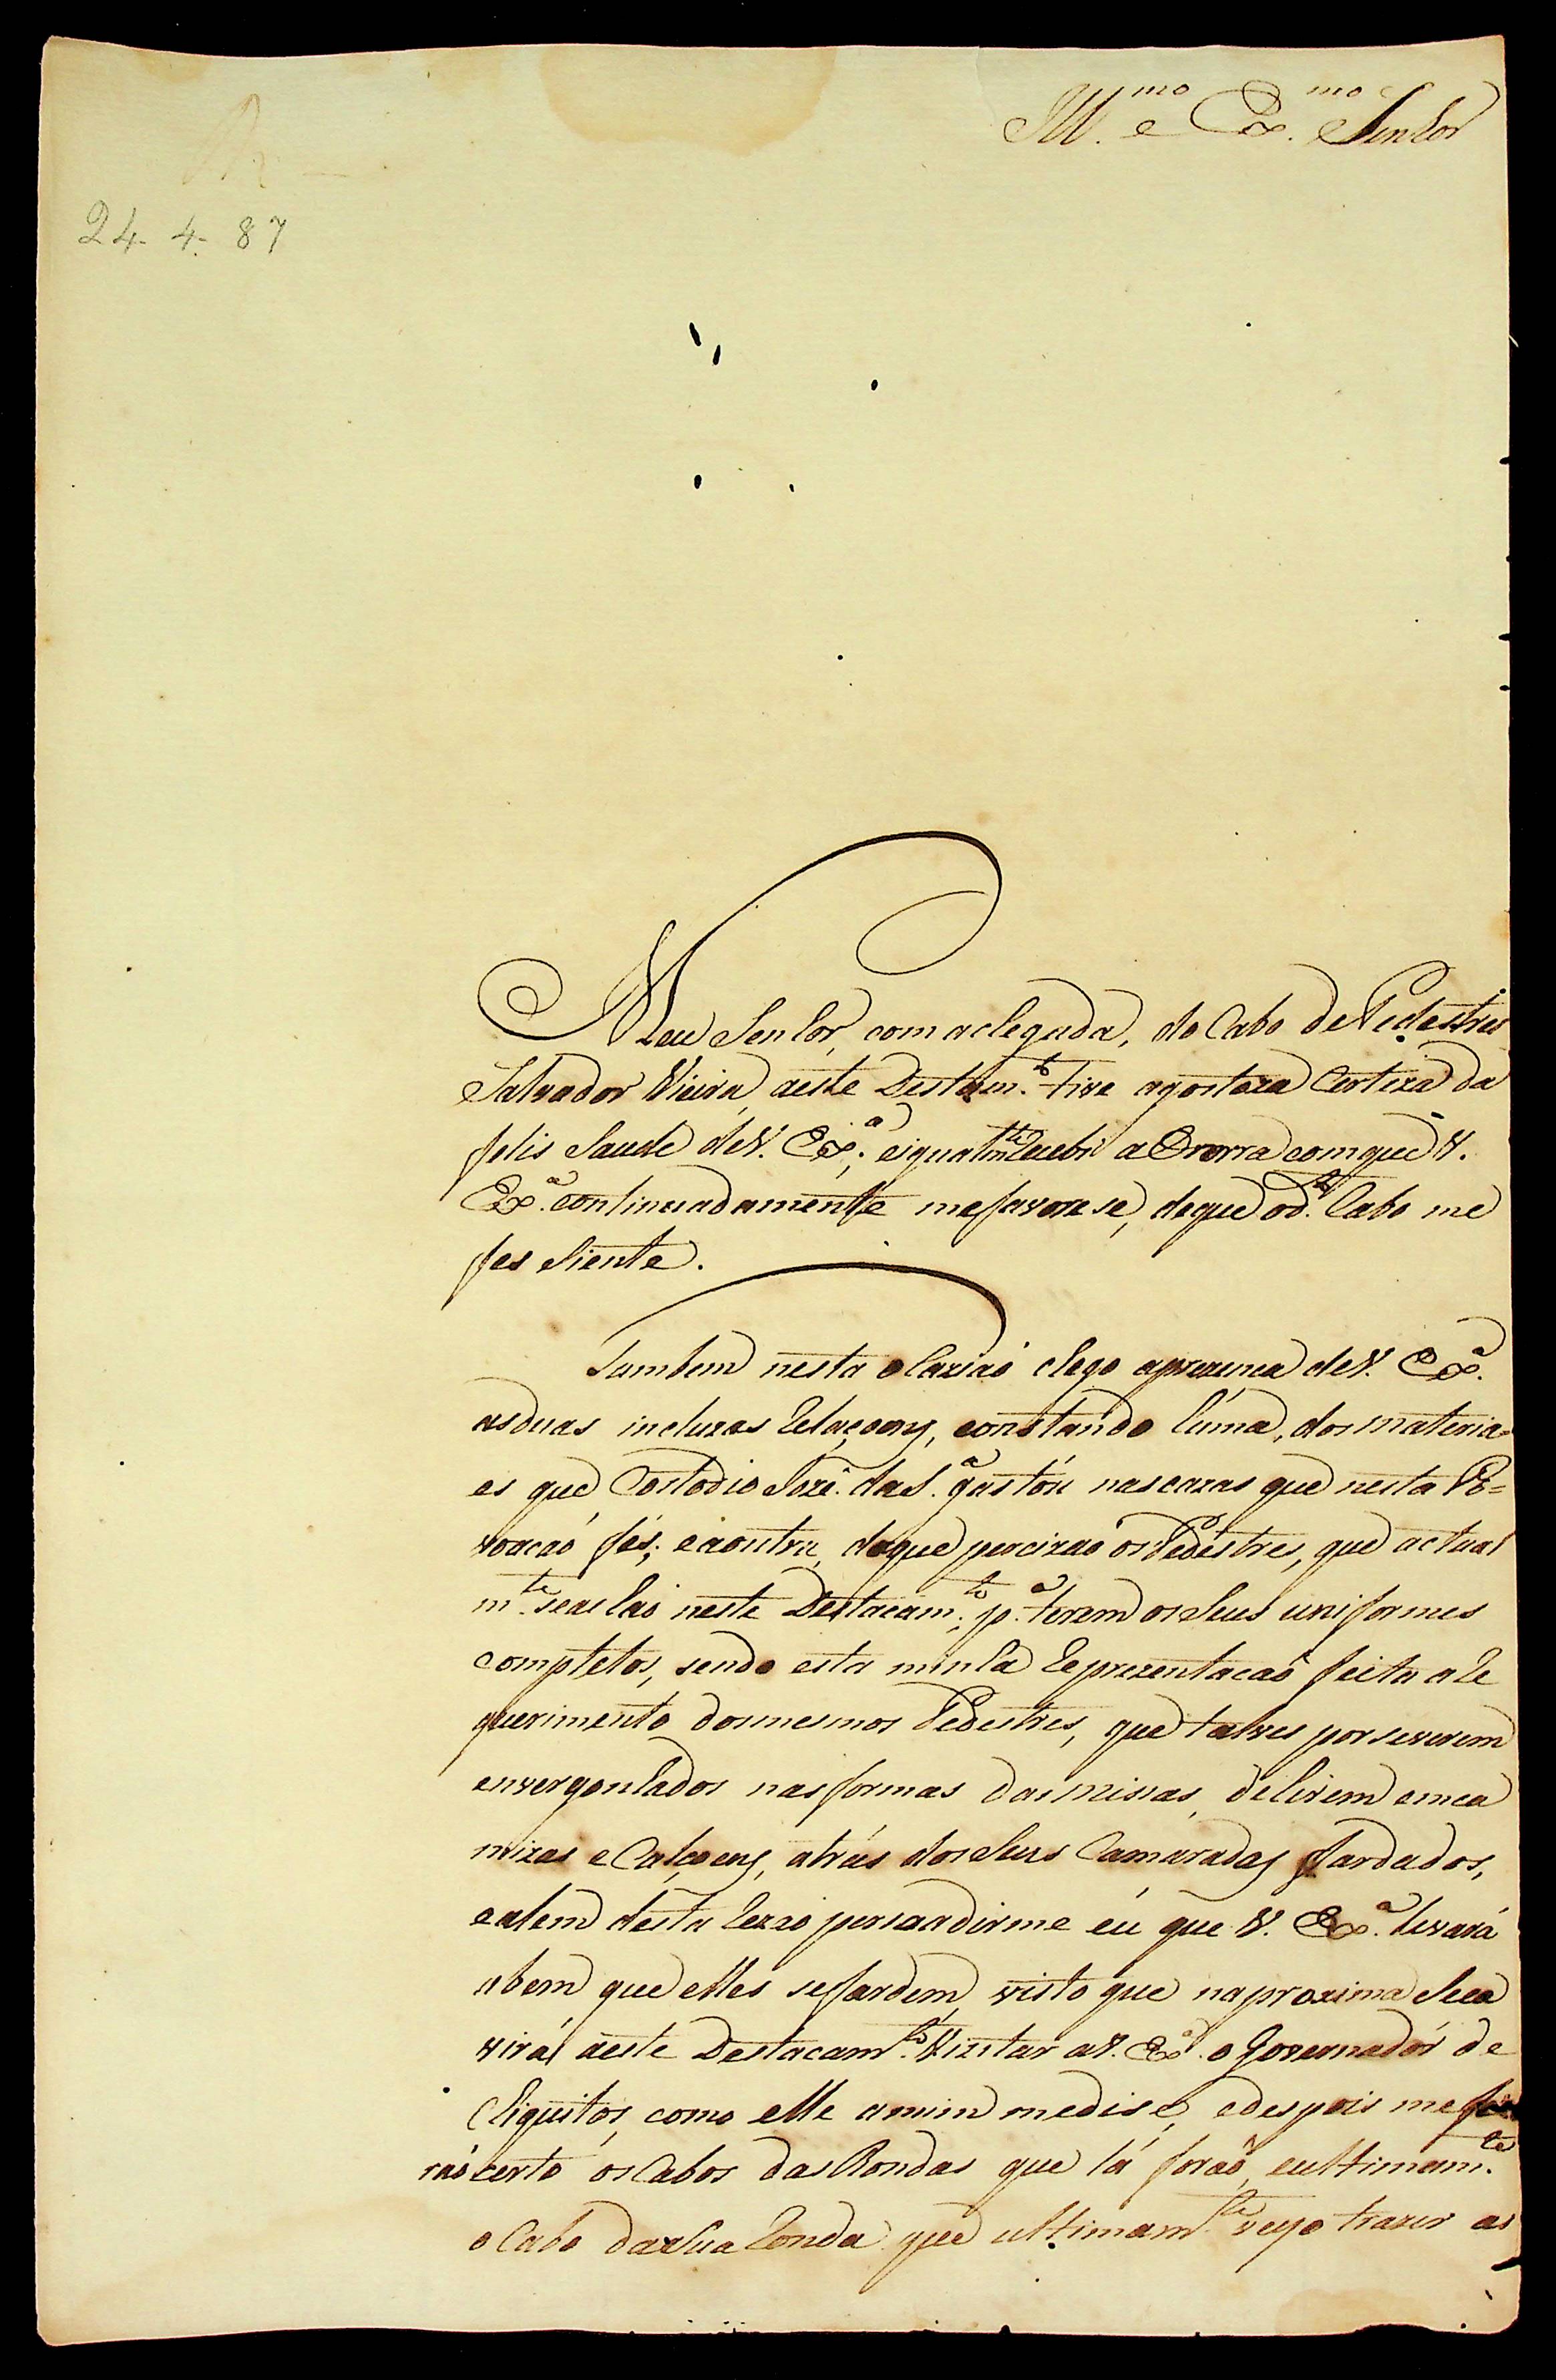 Ill.mo e Ex.mo Senhor
24-4-87
Meu Senhor, com a chegada, do Cabo de Pedestres
Salvador Vieira, aeste Destam.to tive agostoza Certeza da
felis Saude deV. Ex.a; eigualm.te Recebi a Onrra comque V.
Ex.a continuadamente mefavorese, deque od.to Cabo me
fes Siente.
Tambem nesta oCaziaó chego aprezença deV. Ex.a
asduas incluzas Relaçoens, constando húma, dos materia=
es que Costodio Jozé daS.a gastóu nascazas que nesta Po=
voacaó fés; eaoutra, doque percizaó osPedestres, que actual
m.te seachaó neste Destacam.to; p.a terem os Seus uniformes
completos, sendo esta minha Reprezentacaó feita a Re
querimento dosmesmos Pedestres, que talves porseverem
envergonhados nasformas dasmissas, dehirem emca
mizas e Calçoens, atrás dos Seus Camaradas fardados,
ealem desta Rezaó persuadirme eú que V. Ex.a levará
abem que elles sefardem, visto que naproxima Seca
virá aeste Destacam.to Vizitar aV. Ex.a o Governadór de
Chiquitos, como elle amim medise, edespois me fi
raó certo os Cabos das Rondas que lá foraó, eultimam.te
o Cabo dasua Ronda que ultimam.te veyo trazer as